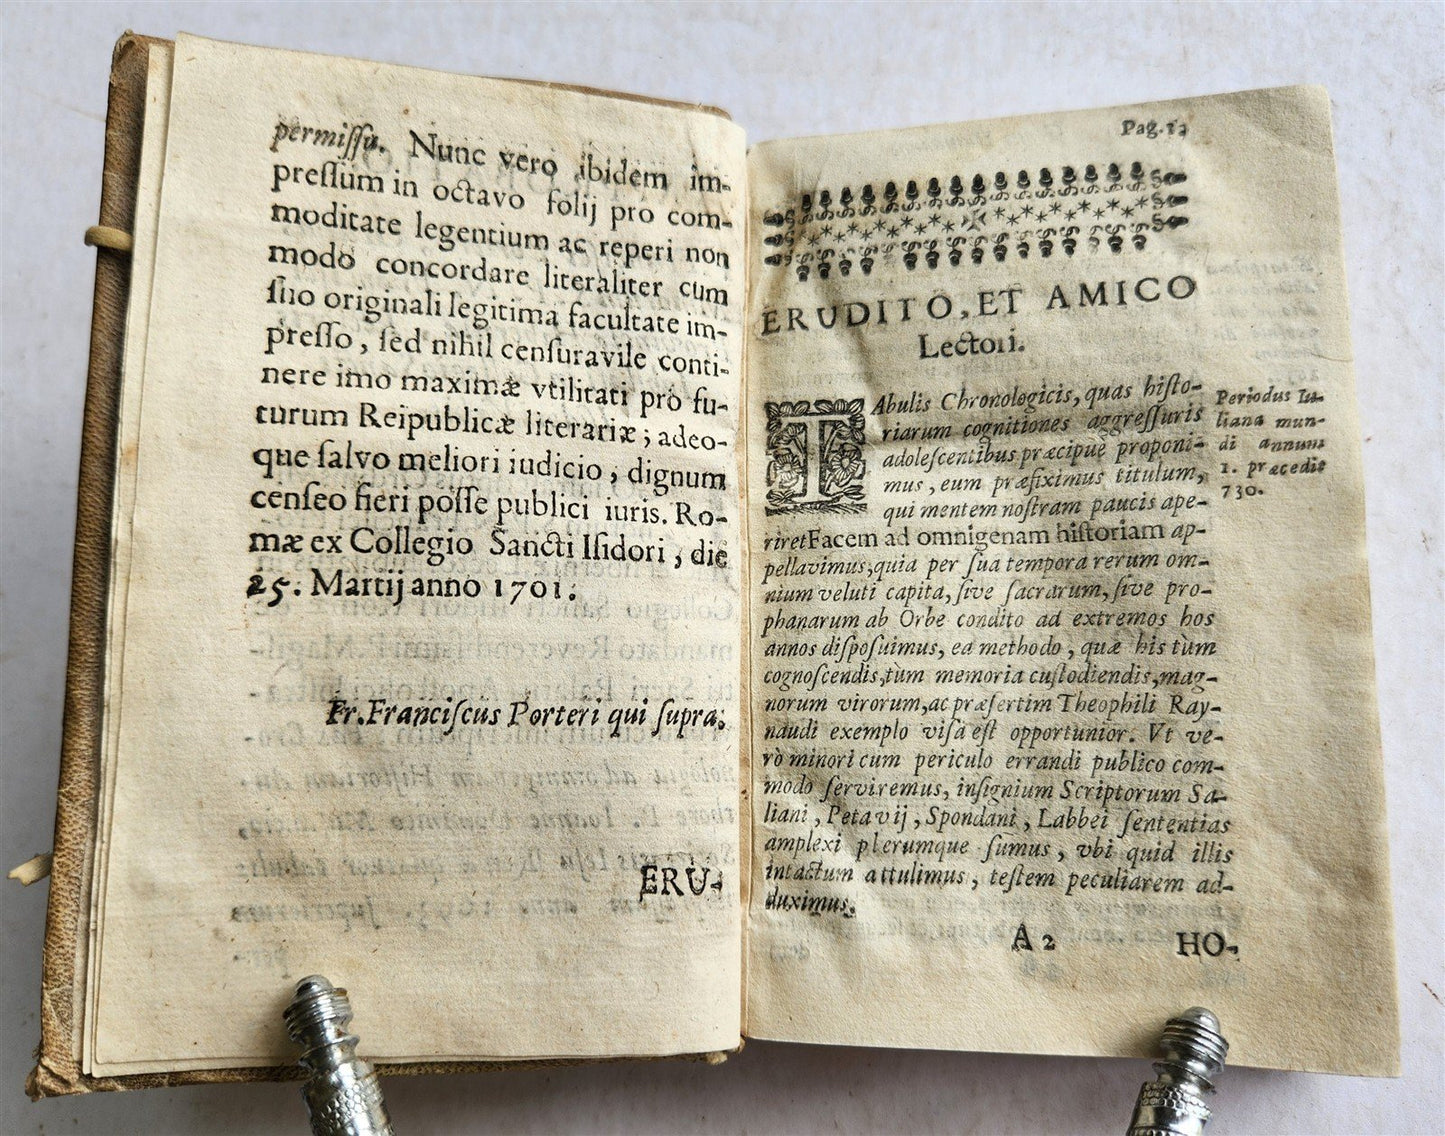 permissu. Nunc vero ibidem im-
pressum in octavo folij pro com-
moditate legentium ac reperi non
modò concordare literaliter cum
suo originali legitima facultate im-
presso, sed nihil censuravile conti-
nere imo maximæ vtilitati pro fu-
turum Reipublicæ literariæ; adeo-
que salvo meliori iudicio, dignum
censeo fieri posse publici iuris. Ro-
mæ ex Collegio Sancti Isidori, die
25. Martij anno 1701.
Fr. Franciscus Porteri qui supra.
ERU-
Pag.
ERUDITO, ET AMICO
Lectori.
TAbulis Chronologicis, quas histo-
riarum cognitiones aggressuris
adolescentibus præcipuè proponi-
mus, eum præfiximus titulum,
qui mentem nostram paucis ape-
riret Facem ad omnigenam historiam ap-
pellavimus, quia per sua tempora rerum om-
nium veluti capita, sive sacrarum, sive pro-
phanarum ab Orbe condito ad extremos hos
annos disposuimus, ea methodo, quæ his tùm
cognoscendis, tùm memoria custodiendis, mag-
norum virorum, ac præsertim Theophili Ray-
naudi exemplo visa est opportunior. Vt ve-
rò minori cum periculo errandi publico com-
modo serviremus, insignium Scriptorum Sa-
liani, Petavij, Spondani, Labbei sententias
amplexi plerumque sumus, vbi quid illis
intactum attulimus, testem peculiarem ad-
duximus.
Periodus Iu-
liana mun-
di annum
1. præcedit
730.
A 2
HO-